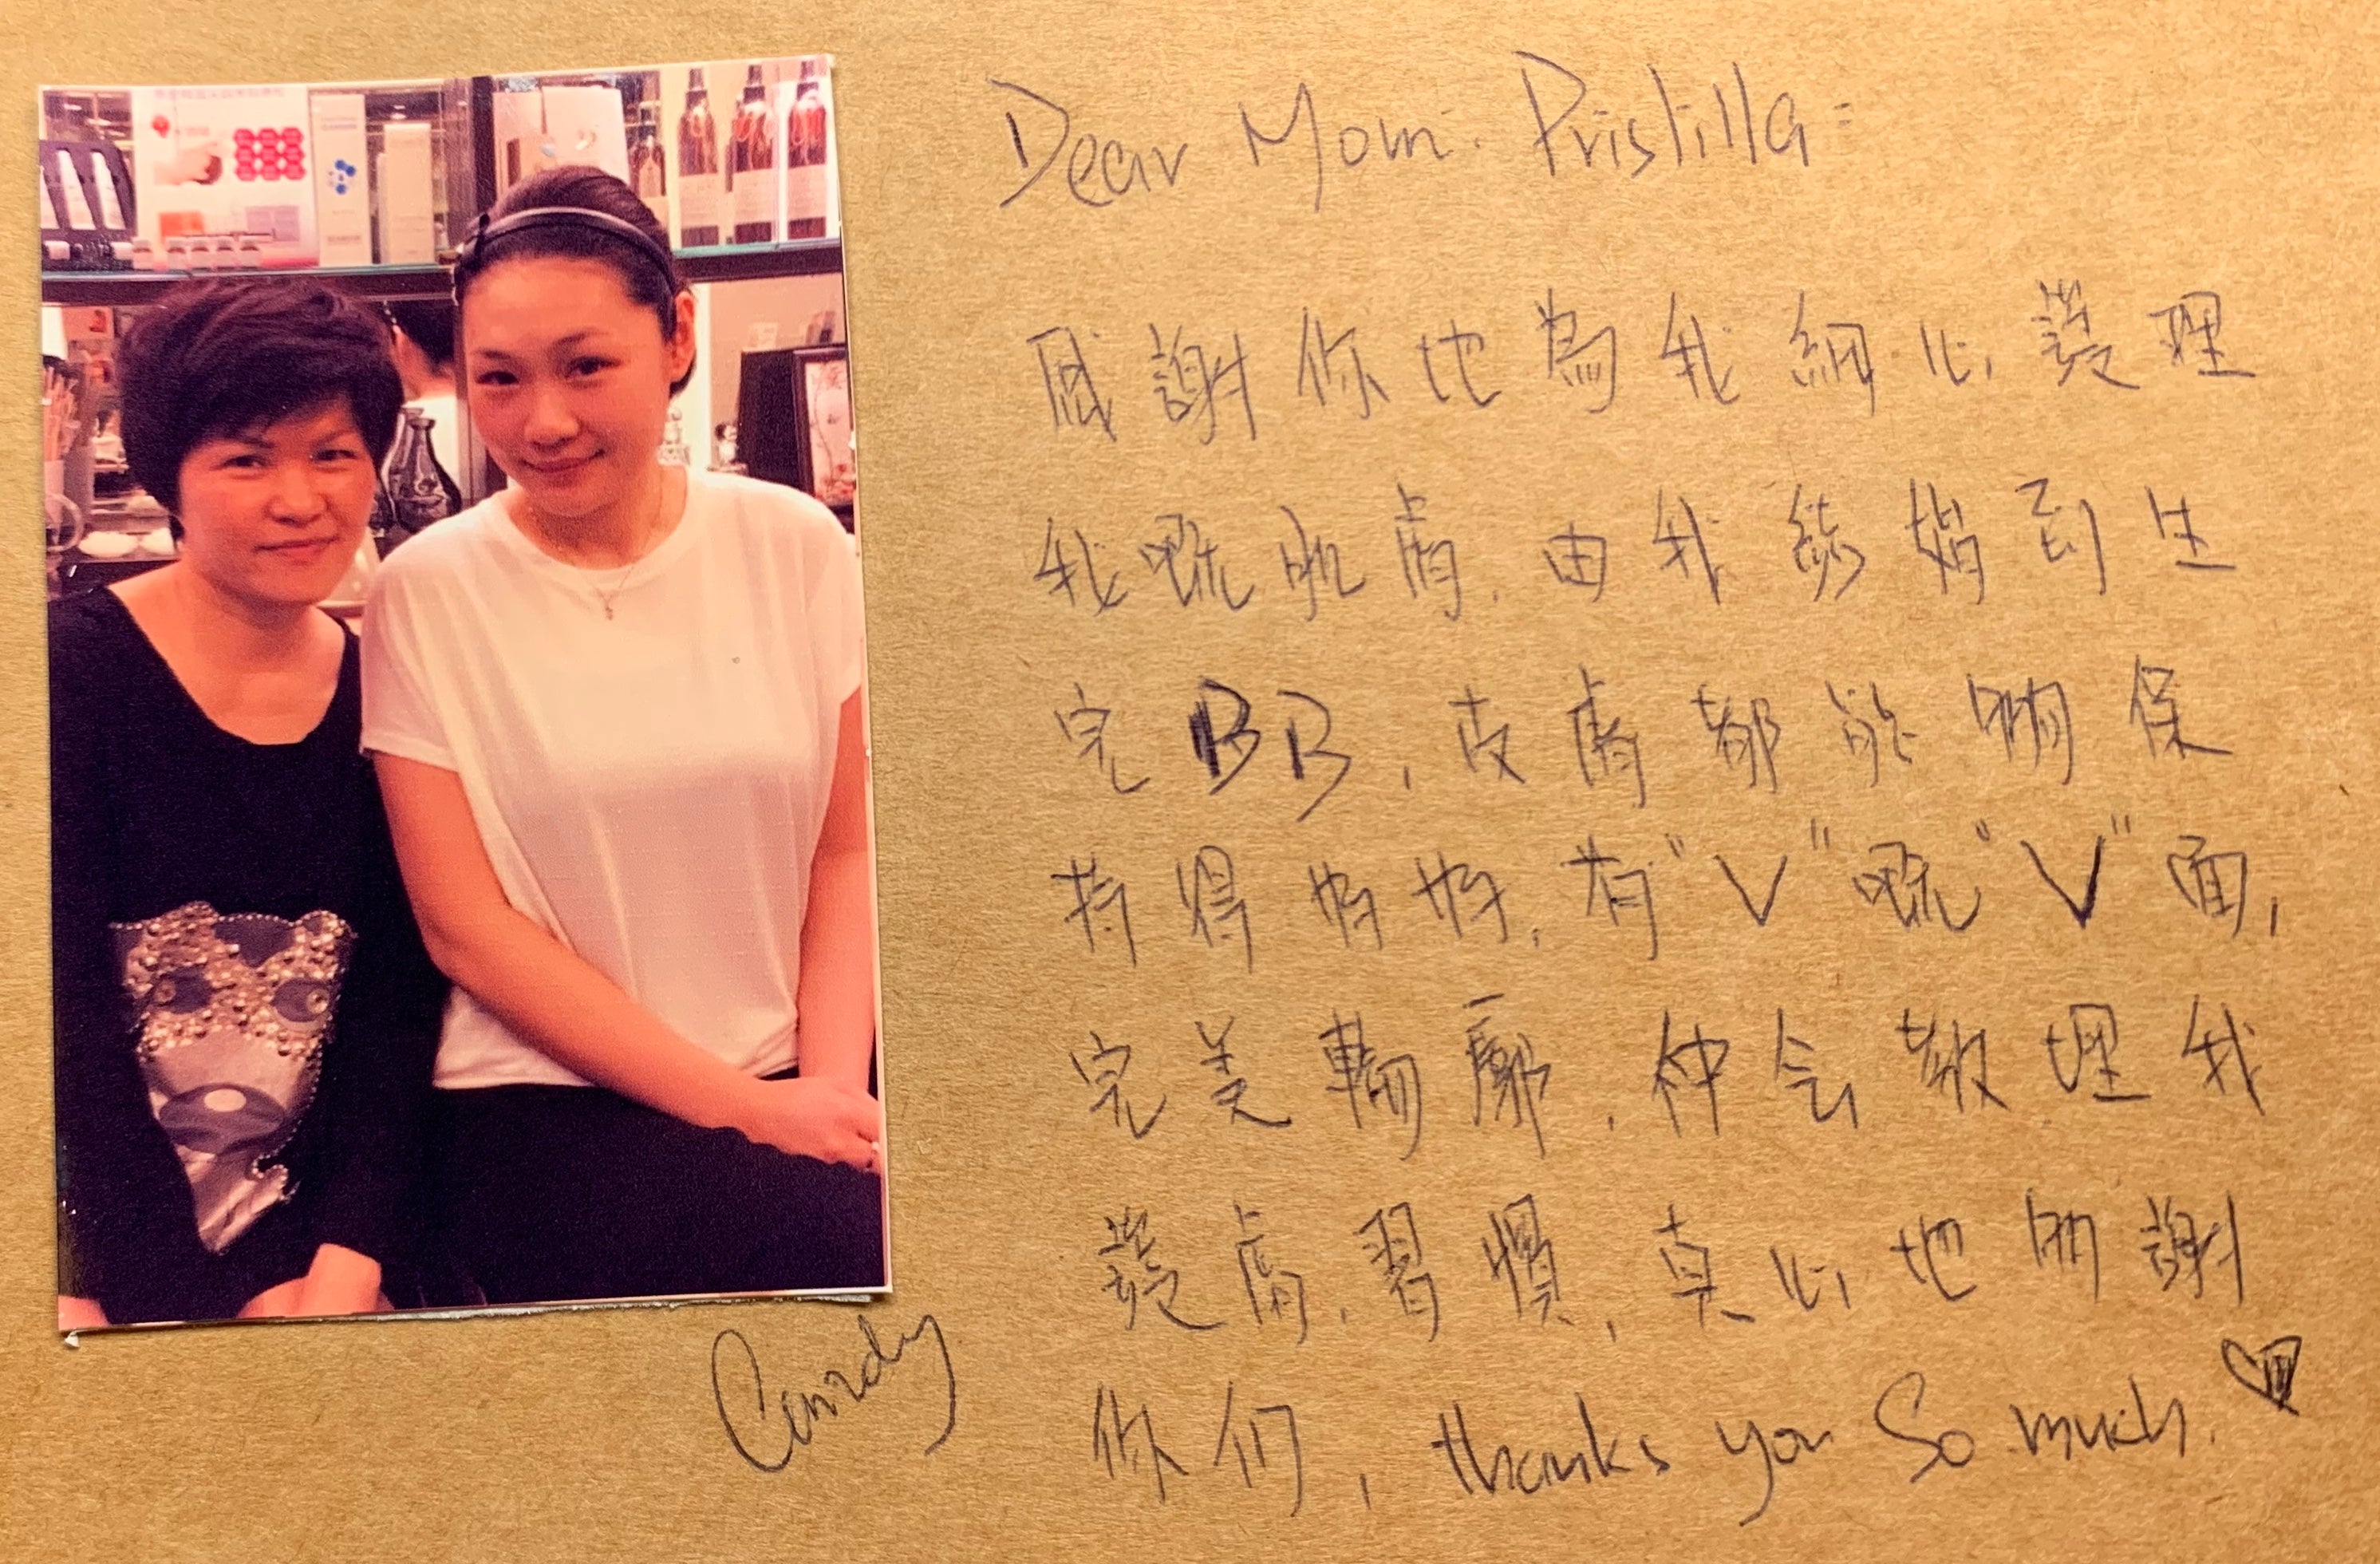 Dear Mom. Pristilla:
感謝你地為我細心護理
我嘅肌膚.由我結婚到生
完BB,皮膚都能夠保
持得好好.有"V"嘅"V"面,
完美輪廓.仲会教埋我
護膚.習慣,真心地多謝
你们,thanks you So much.
Candy